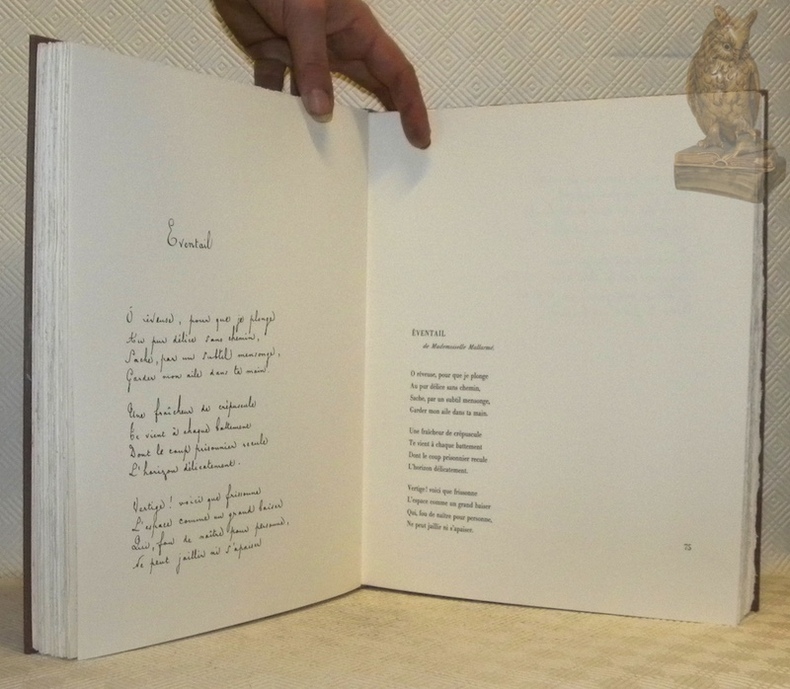 Eventail
O rêveuse, pour que je plonge
Au pur délice sans chemin,
Sache, par un subtil mensonge,
Garder mon aile dans ta main
Une fraîcheur de crépuscule
Te vient à chaque battement
Dont le coup prisonnier recule
L'horizon délicatement.
Vertige! voici que frissonne
L'espace comme un grand baiser
Qui, fou de naître pour personne,
Ne peut jaillir ni s'apaiser
ÉVENTAIL
de Mademoiselle Mallarmé.
O rêveuse, pour que je plonge
Au pur délice sans chemin,
Sache, par un subtil mensonge,
Garder mon aile dans ta main.
Une fraîcheur de crépuscule
Te vient à chaque battement
Dont le coup prisonnier recule
L'horizon délicatement.
Vertige! voici que frissonne
L'espace comme un grand baiser
Qui, fou de naître pour personne,
Ne peut jaillir ni s'apaiser.
75